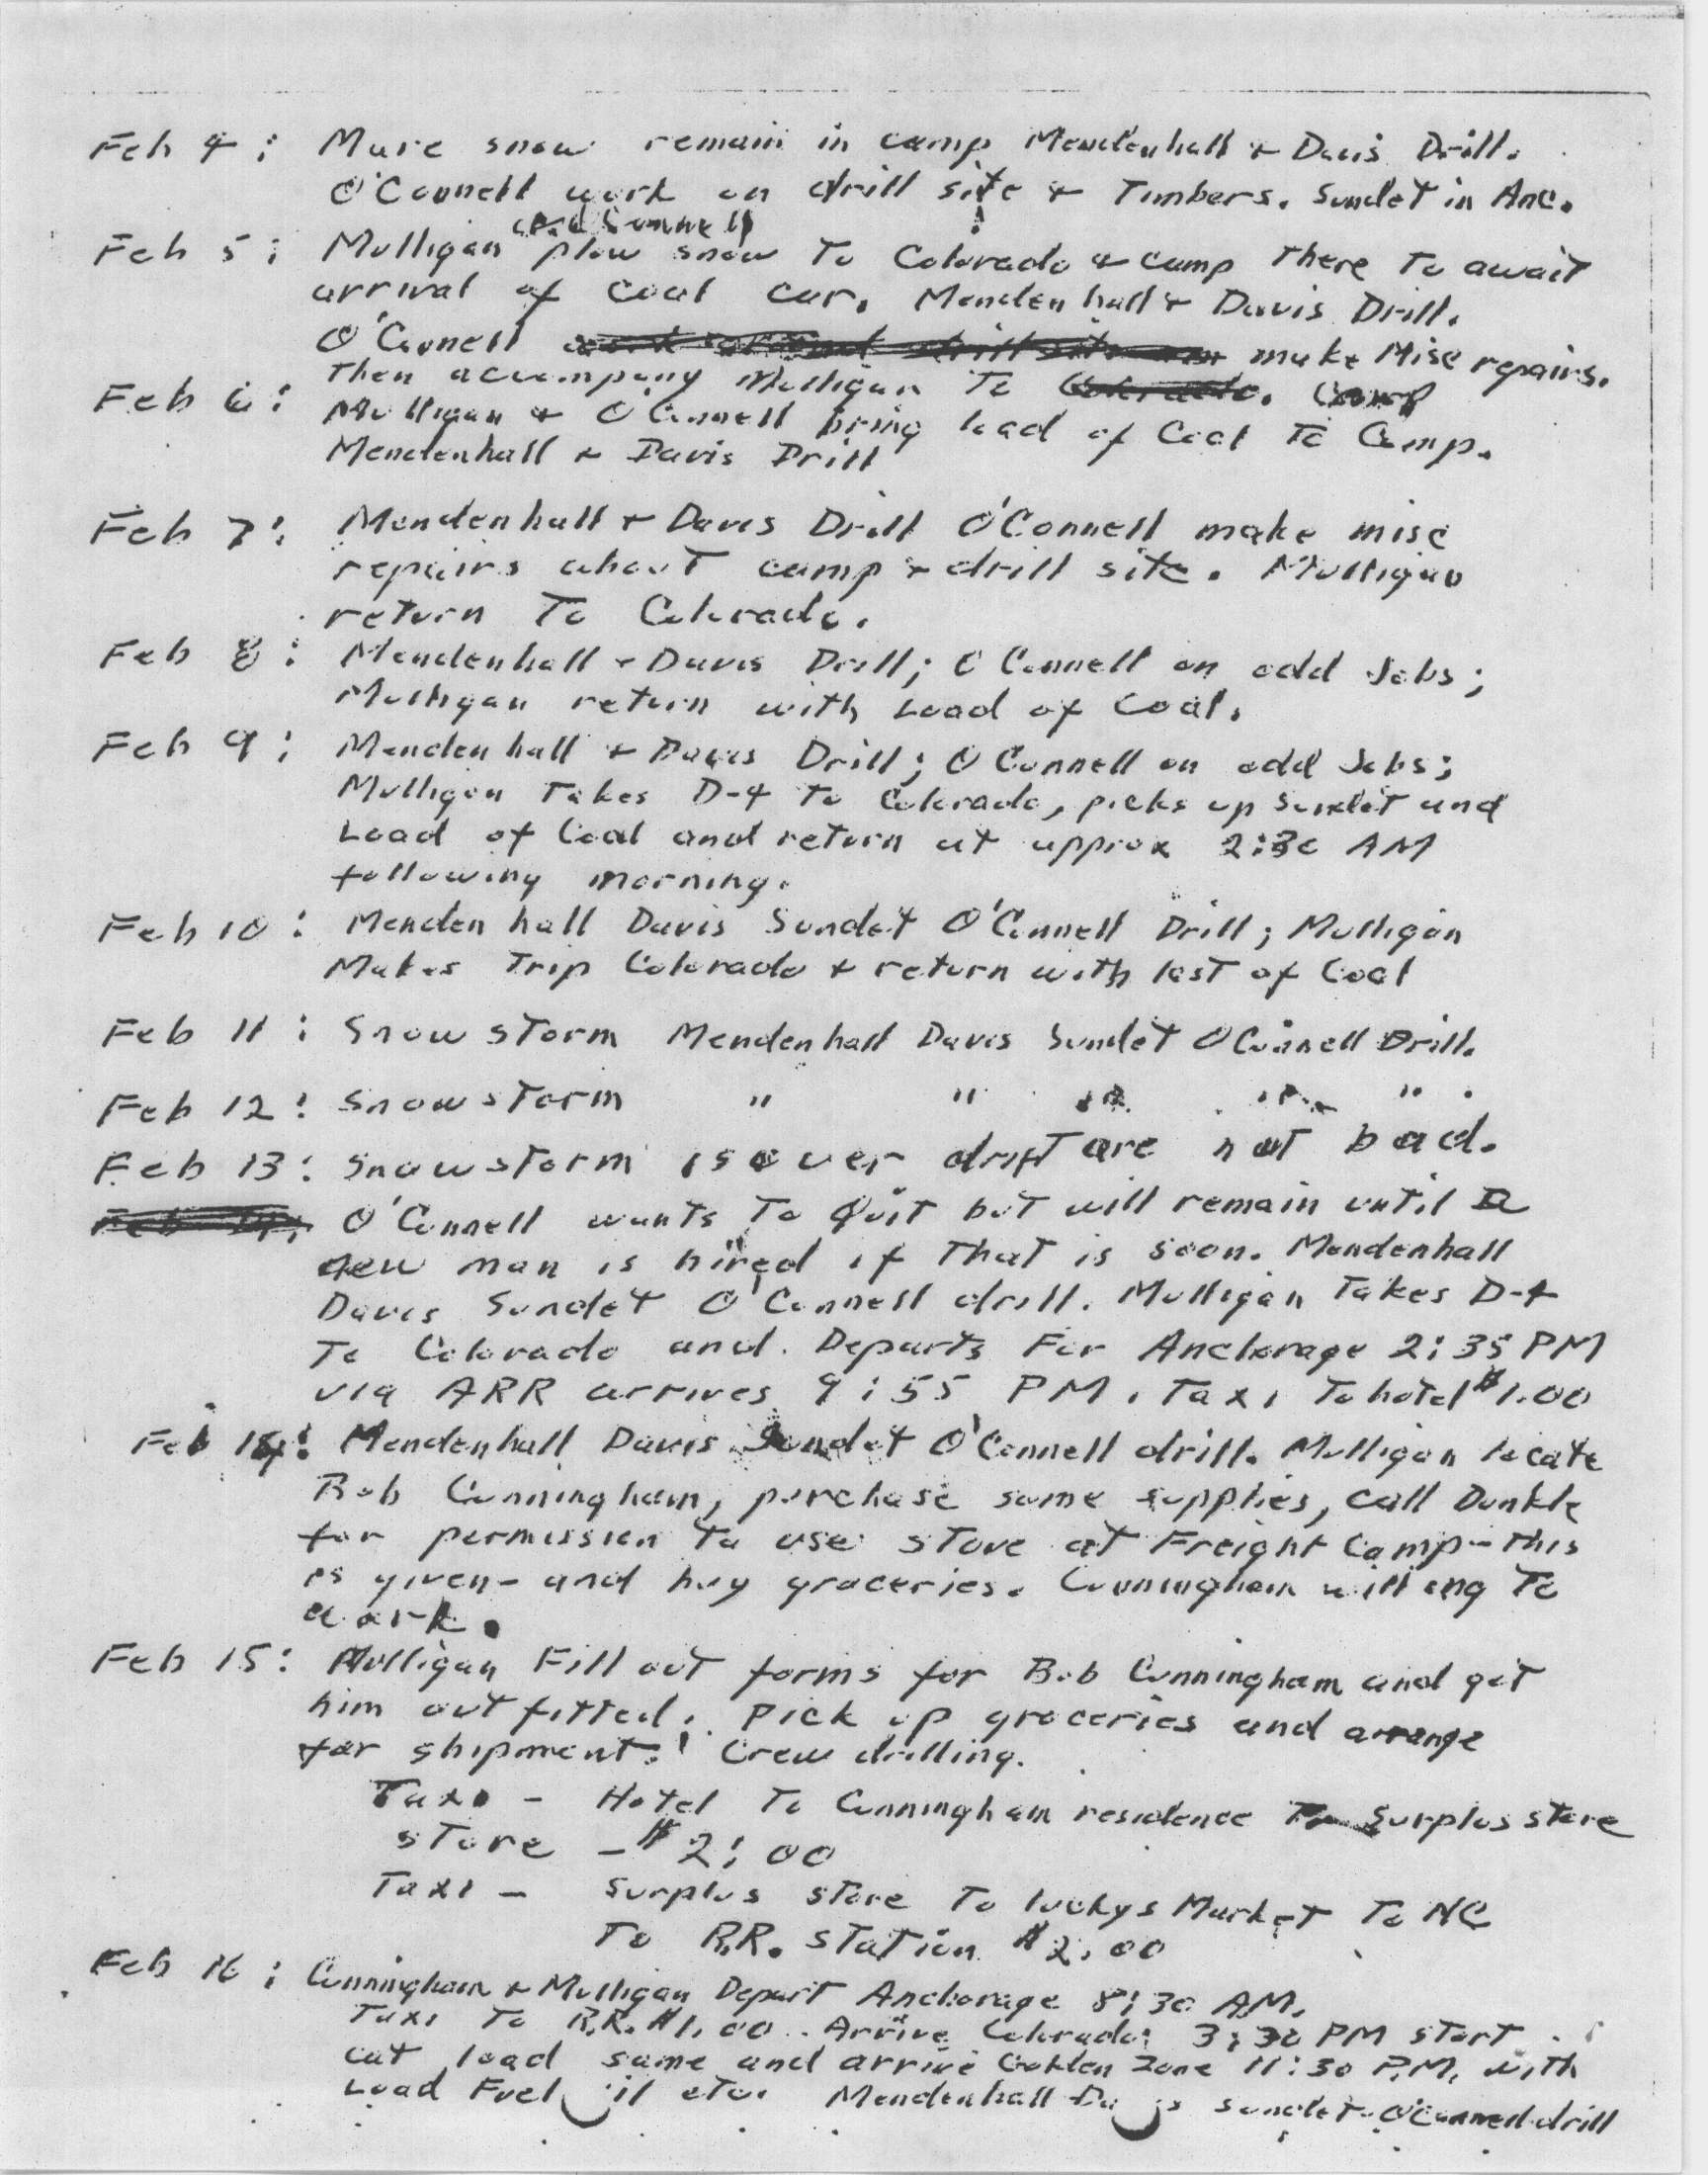 Feb 4: More snow remain in camp Mendenhall + Davis Drill.
O'Connell work on drill site + Timbers. Sundet in Anc.
Feb 5: Mulligan plow snow To Colorado + camp There To await
arrival of coal car. Mendenhall + Davis Drill.
O'Connell make Misc repairs.
Then accompany Mulligan To
Feb 6: Mulligan + O'Connell bring load of Coal To Camp.
Mendenhall + Davis Drill
Feb 7: Mendenhall + Davis Drill O'Connell make misc
repairs about camp + drill site. Mulligan
return To Colorado.
Feb 8: Mendenhall + Davis Drill; O'Connell on odd Jobs;
Mulligan return with Load of Coal.
Feb 9: Mendenhall + Davis Drill; O'Connell on odd Jobs;
Mulligan Takes D-4 To Colorado, picks up Sundet and
Load of Coal and return at approx 2:30 AM
following morning.
Feb 10: Mendenhall Davis Sundet O'Connell Drill; Mulligan
Makes Trip Colorado + return with last of Coal
Feb 11: Snow storm Mendenhall Davis Sundet O'Connell Drill.
Feb 12: Snowstorm " " " " " .
Feb 13: Snowstorm is over drift are not bad.
O'Connell wants To Quit but will remain until a
new man is hired if That is soon. Mendenhall
Davis Sundet O'Connell drill. Mulligan Takes D-4
To Colorado and Departs For Anchorage 2:35 PM
via ARR arrives 9:55 PM. Taxi To hotel $1.00
Feb 14: Mendenhall Davis Sundet O'Connell drill. Mulligan locate
Bob Cunningham, purchase some supplies, call Dunkle
for permission To use stove at Freight Camp - This
is given - and buy groceries. Cunningham willing To
work.
Feb 15: Mulligan Fill out forms for Bob Cunningham and get
him outfitted. Pick up groceries and arrange
for shipment. Crew drilling.
Taxi - Hotel To Cunningham residence To Surplus store
store - $2.00
Taxi - Surplus store To luckys Market To NC
To R.R. station $2.00
Feb 16: Cunningham + Mulligan Depart Anchorage 8:30 AM.
Taxi To R.R. $1.00. Arrive Colorado 3:30 PM start
cat load same and arrive Golden Zone 11:30 P.M. with
Load Fuel oil etc. Mendenhall Davis Sundet O'Connell drill